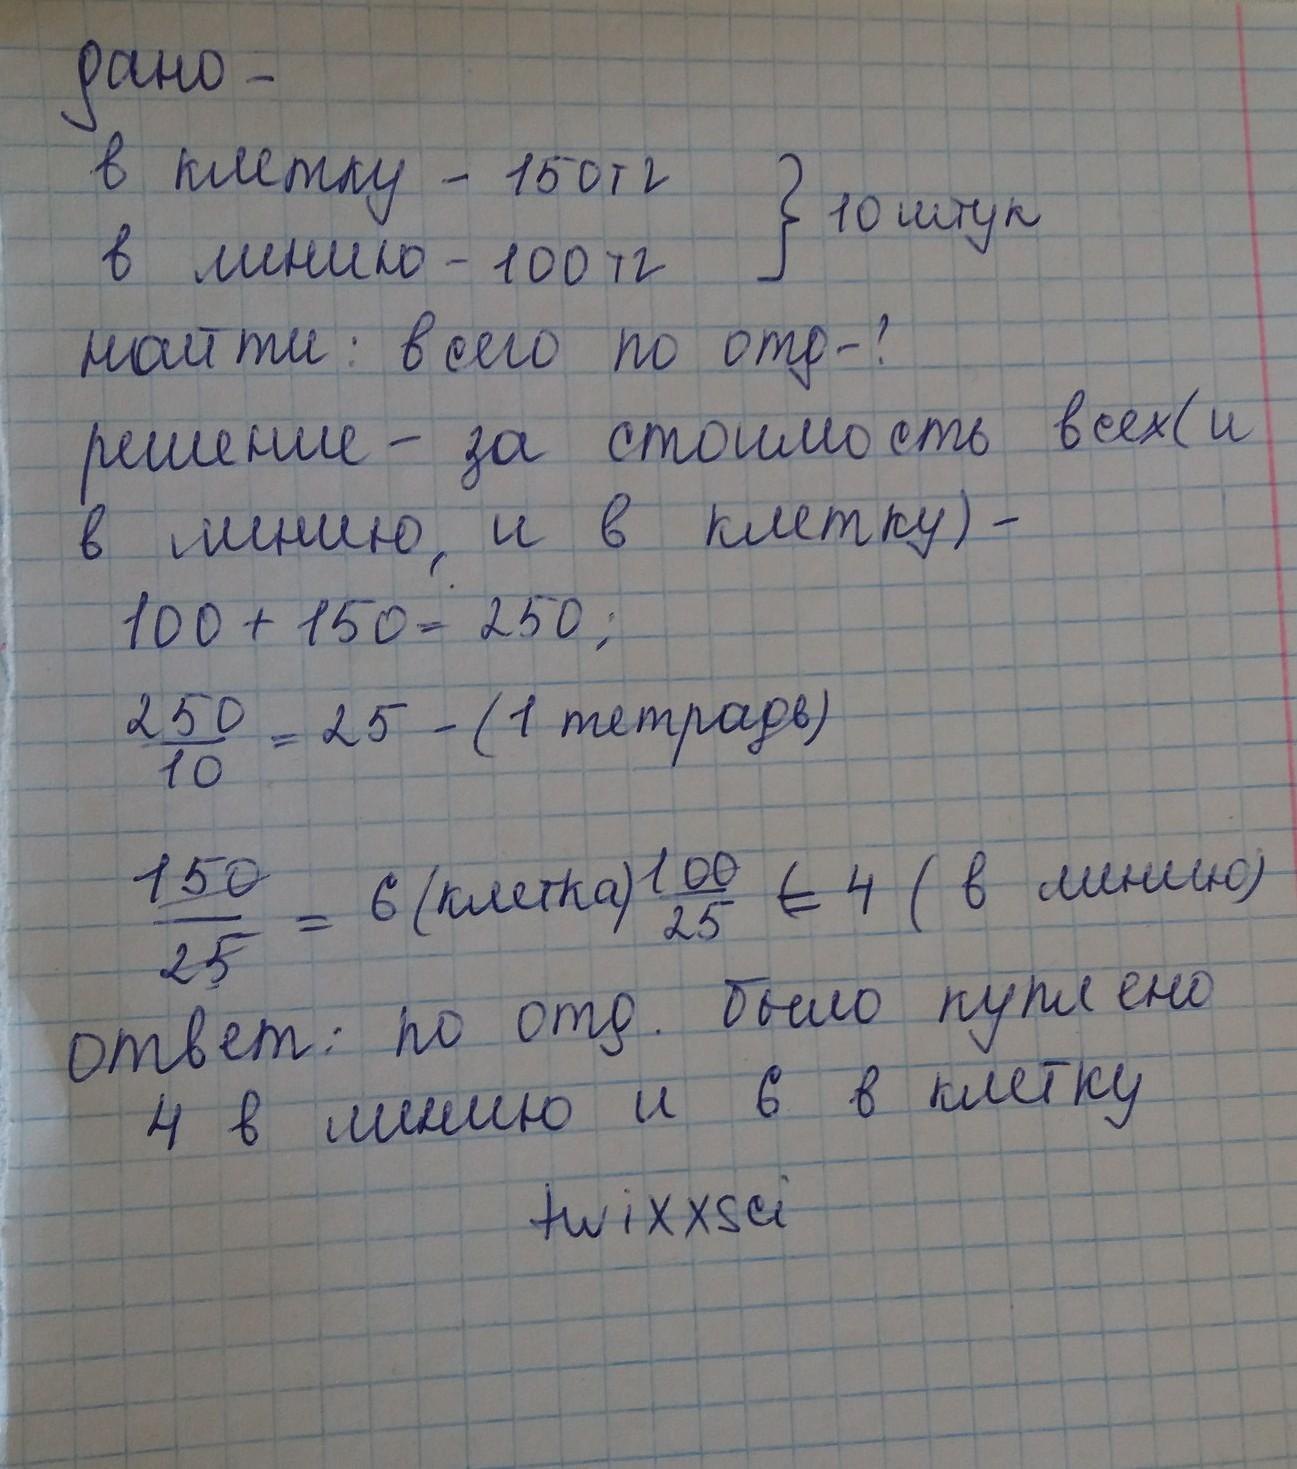 дано -
в клетку - 150тг
в линию - 100тг } 10 штук
найти: всего по отд-?
решение - за стоимость всех(и
в линию, и в клетку) -
100 + 150 = 250;
250/10 = 25 - (1 тетрадь)
150/25 = 6 (клетка) 100/25 = 4 ( в линию)
ответ: по отд. было куплено
4 в линию и 6 в клетку
twixxsci